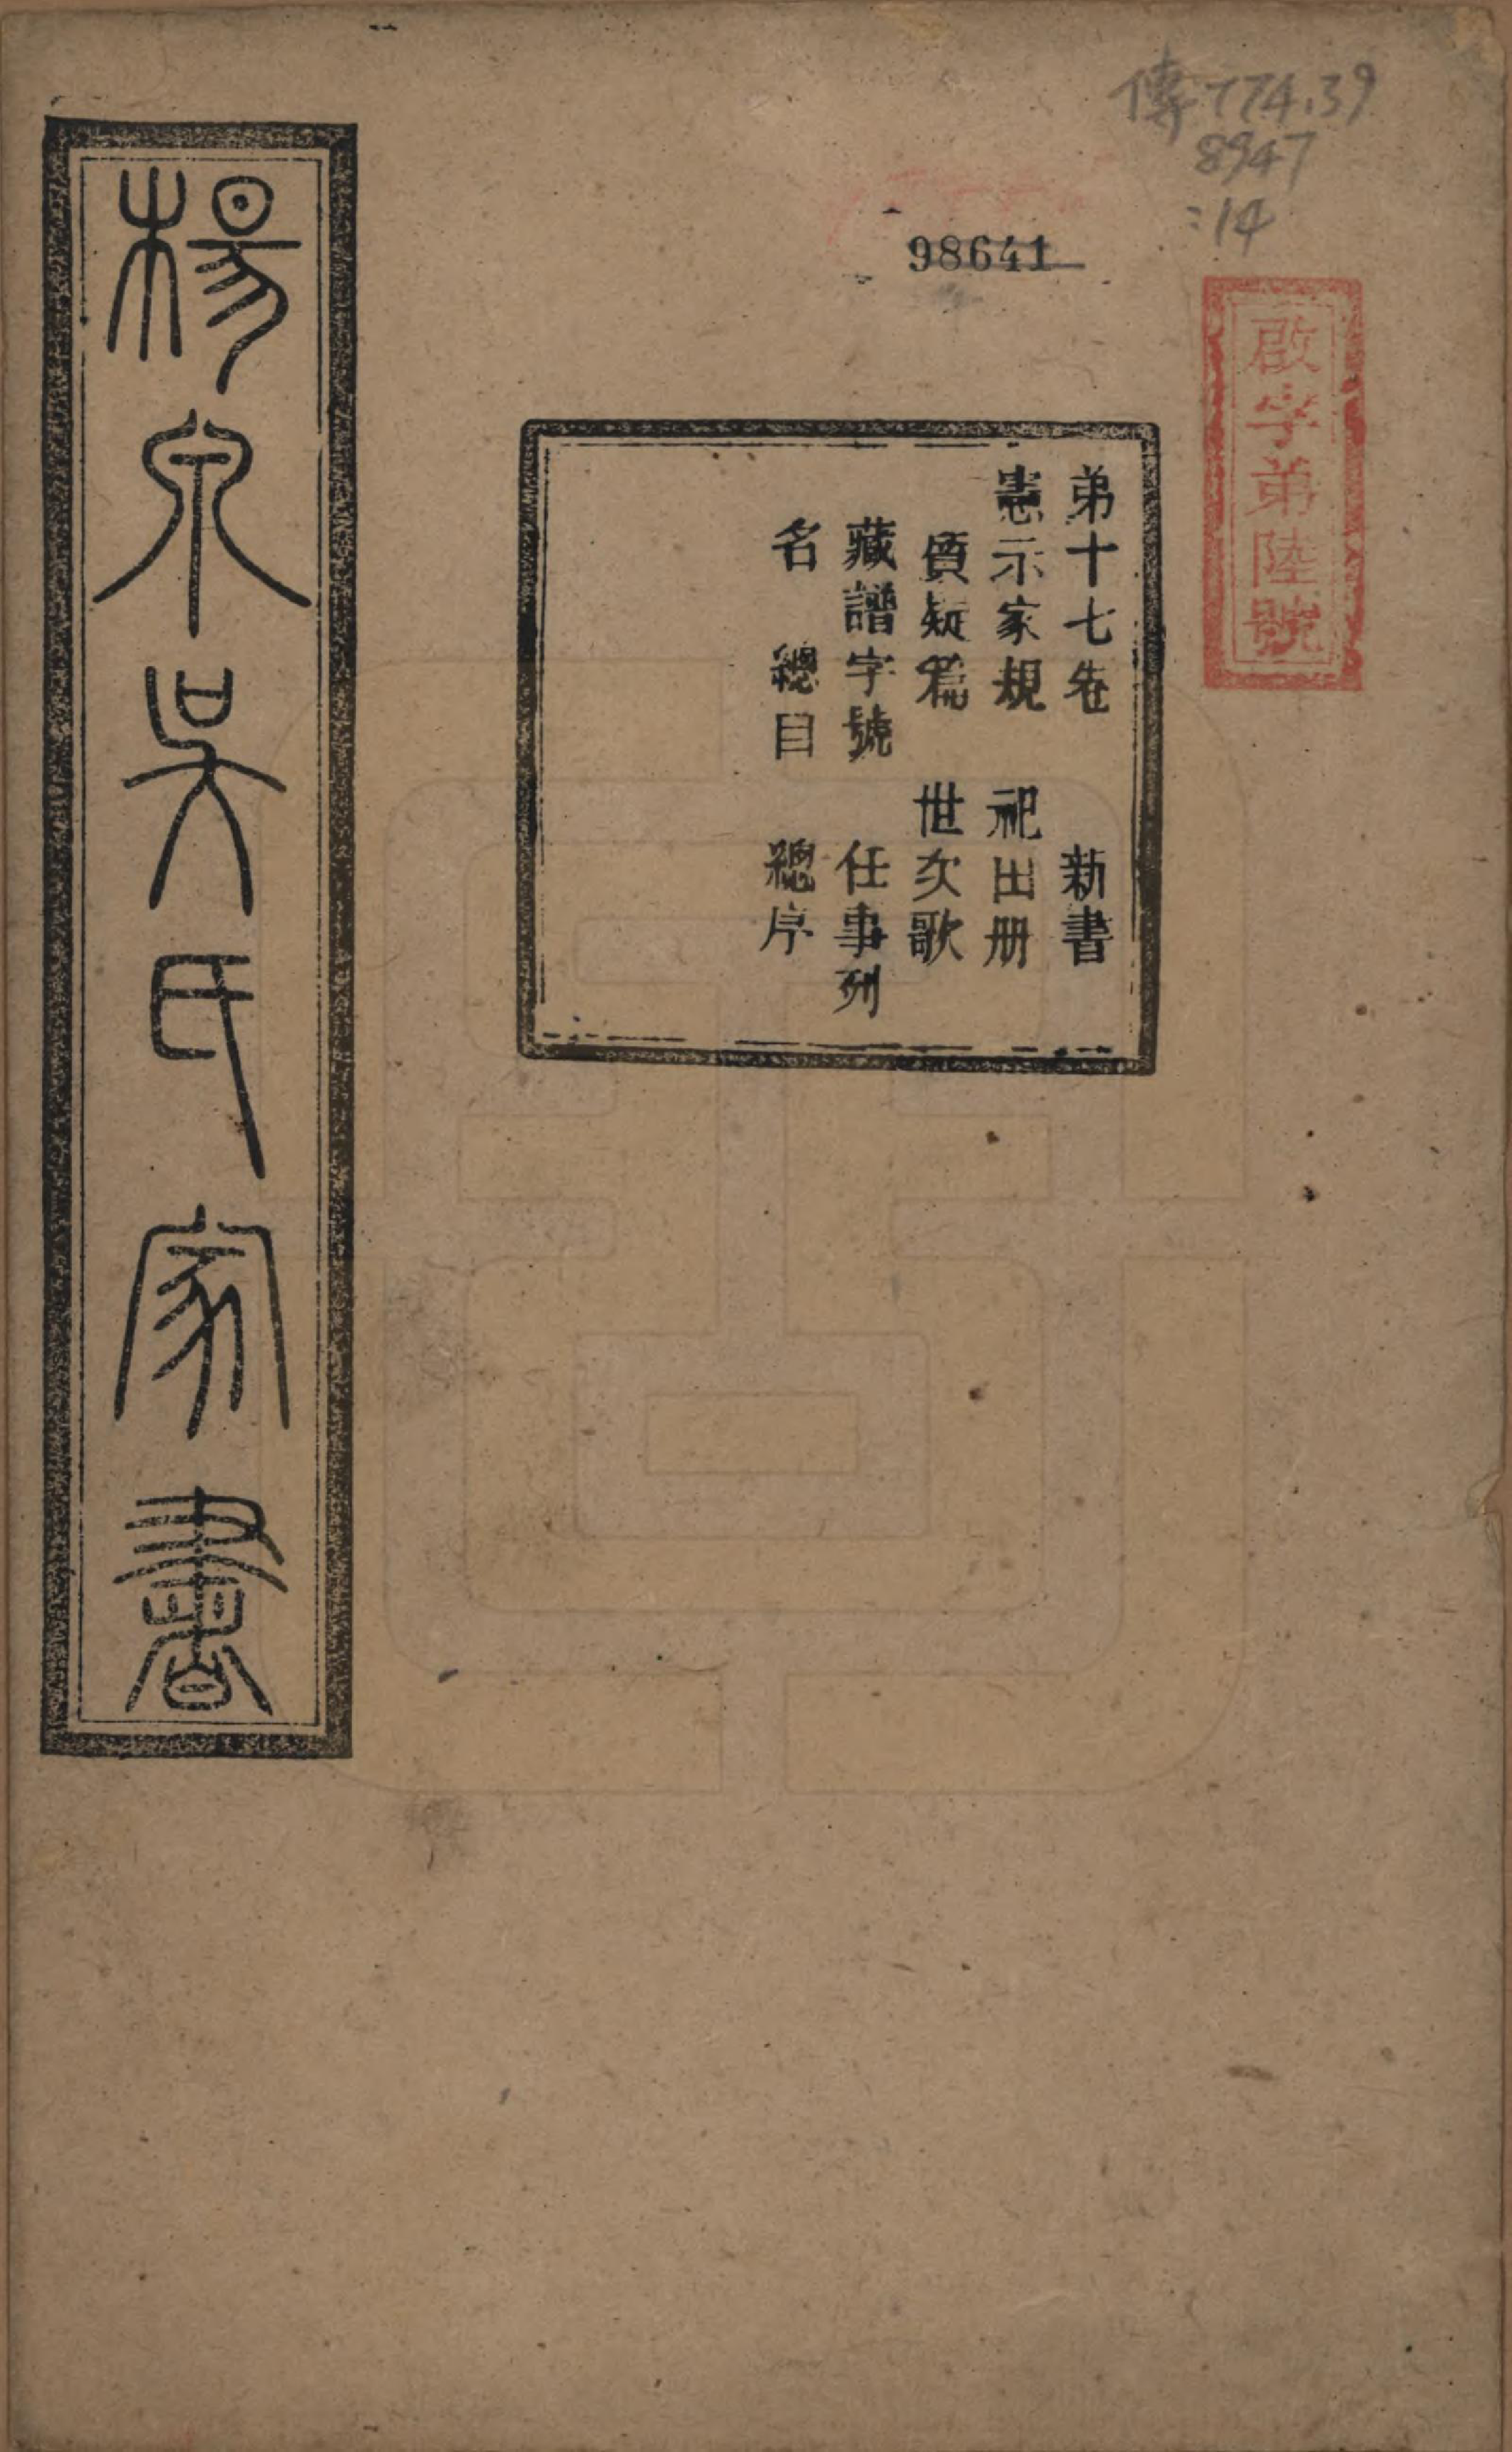 傳 774.39
8947
:14
98641
啟字弟陸號
弟十七卷 新書
憲示家規 祀田册
質疑篇 世次歌
藏譜字號 任事列
名 總目 總序
楊泉吳氏家書